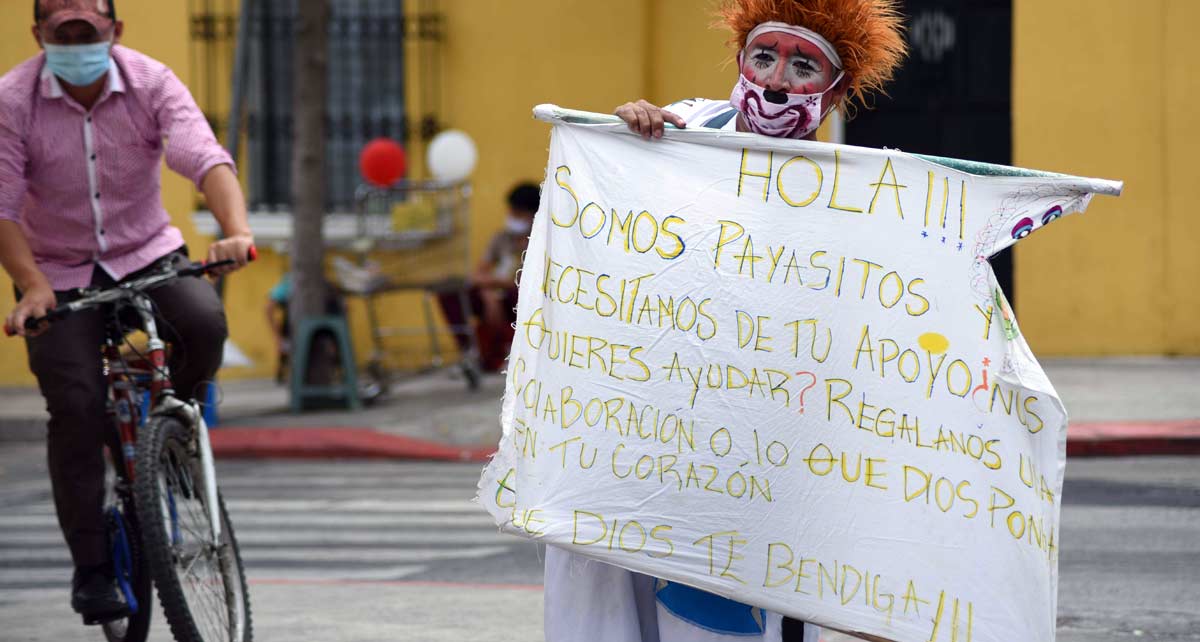 HOLA!!!
SOMOS PAYASITOS Y
NECESITAMOS DE TU APOYO ¡NOS
QUIERES AYUDAR? REGALANOS UNA
COLABORACIÓN O LO QUE DIOS PONGA
EN TU CORAZÓN
QUE DIOS TE BENDIGA!!!